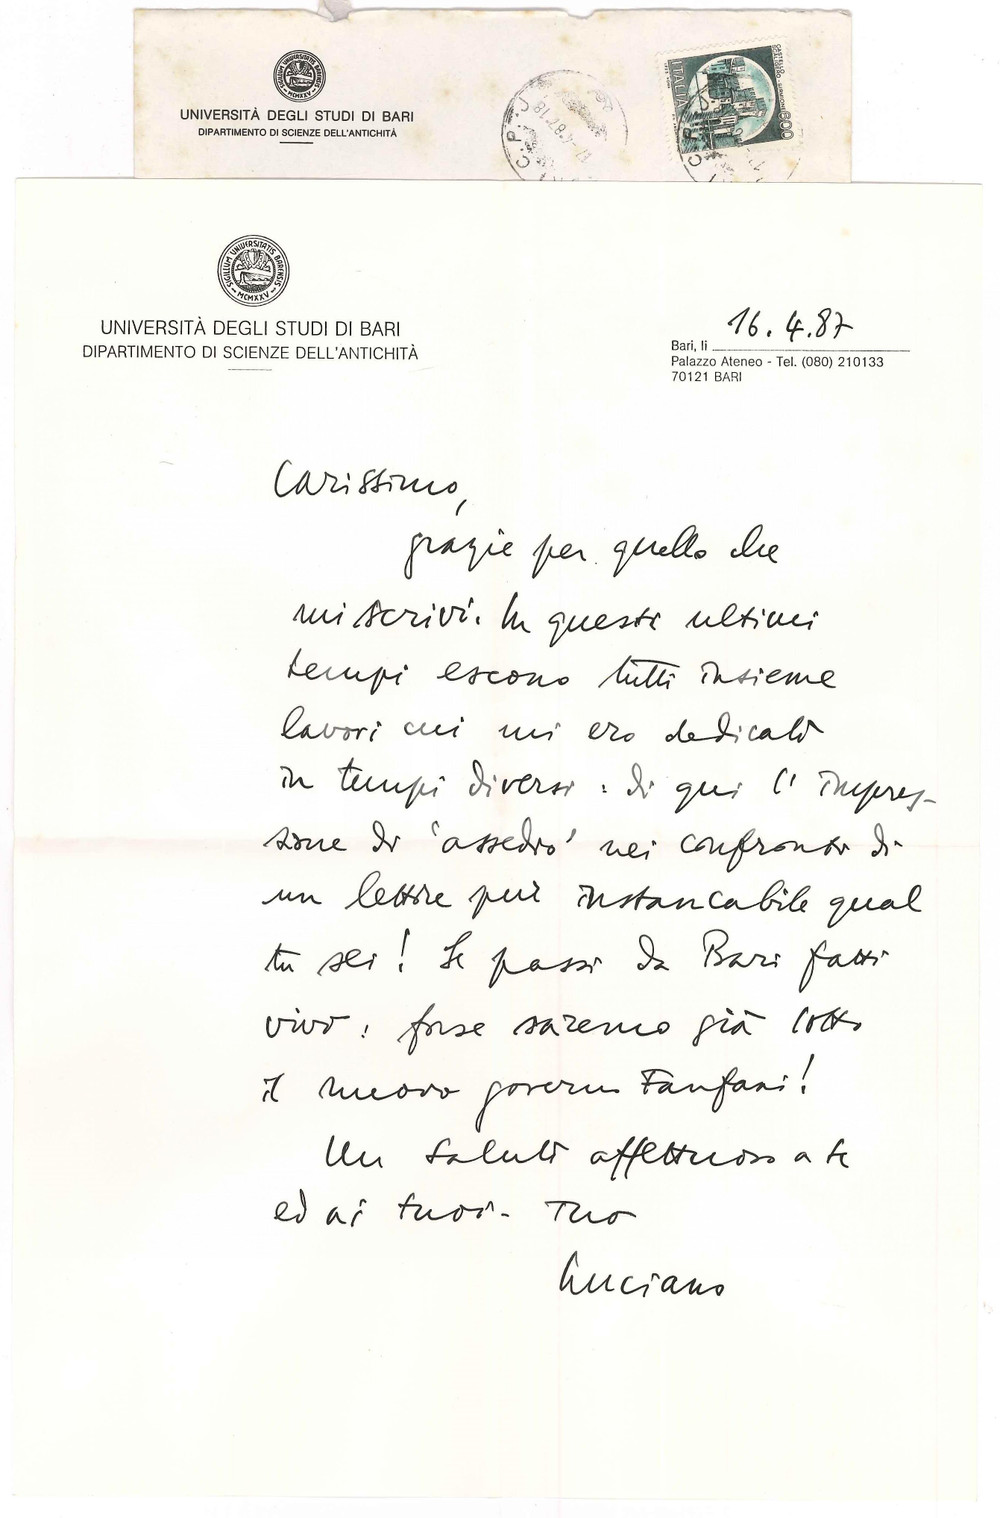 UNIVERSITÀ DEGLI STUDI DI BARI
DIPARTIMENTO DI SCIENZE DELL'ANTICHITÀ
ITALIA
600
SIGILLUM UNIVERSITATIS BARENSIS
MCMXXV
UNIVERSITÀ DEGLI STUDI DI BARI
DIPARTIMENTO DI SCIENZE DELL'ANTICHITÀ
Bari, li 16.4.87
Palazzo Ateneo - Tel. (080) 210133
70121 BARI
Carissimo,
grazie per quello che
mi scrivi. In questi ultimi
tempi escono tutti insieme
lavori cui mi ero dedicato
in tempi diversi: di qui l'impres-
sione di 'assedio' nei confronti di
un lettore pur instancabile qual
tu sei! Se passi da Bari fatti
vivo: forse saremo già sotto
il nuovo governo Fanfani!
Un saluto affettuoso a te
ed ai tuoi. Tuo
Luciano